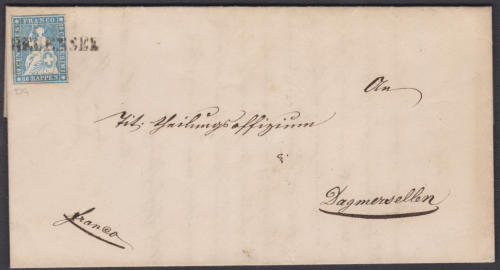 FRANCO
10 RAPPEN
An
Tit: Theilungsoffizium
Dagmersellen
franco